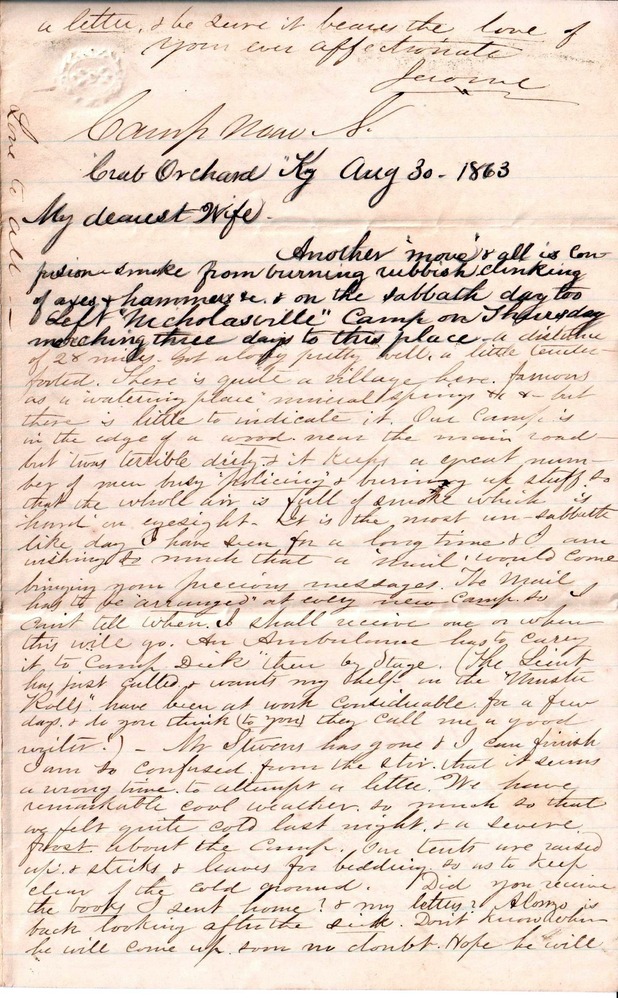 a letter, & be sure it bears the love of
your ever affectionate
Jerome
Love to all —
Camp near
Crab Orchard Ky Aug 30 - 1863
My dearest Wife -
Another "move" & all is con
fusion - smoke from burning rubbish clinking
of axes & hammers &c. & on the sabbath day too
Left "Nicholasville" Camp on Thursday
marching three days to this place - a distance
of 28 miles. Got along pretty well, a little tender-
footed. There is quite a village here. famous
as a "watering place" mineral springs &c &c - but
there is little to indicate it. Our Camp is
in the edge of a wood near the main road -
but 'twas terrible dirty & it keeps a great num-
ber of men busy "policing" & burning up stuff. so
that the whole air is full of smoke which is
hard on eyesight - It is the most un-sabbath
like day I have seen for a long time & I am
wishing so much that a "mail" would come
bringing your precious messages. The Mail
has to be "arranged" at every new Camp. so I
can't tell when I shall receive one or when
this will go. An Ambulance has to carry
it to "Camp Dick" then by Stage. (The Lieut
has just called & wants my help on the "Muster
Rolls" have been at work considerable for a few
days. & do you think (to you) they call me a good
writer!) - Mr Stevens has gone & I can finish
I am so confused from the stir, that it seems
a wrong time to attempt a letter. We have
remarkable cool weather. so much so that
we felt quite cold last night, & a severe
frost about the Camp. Our tents are raised
up & sticks & leaves for bedding so as to keep
clear of the cold ground. Did you receive
the books I sent home? & my letters? Alonzo is
back looking after the sick. Don't know when
he will come up. soon no doubt. Hope he will